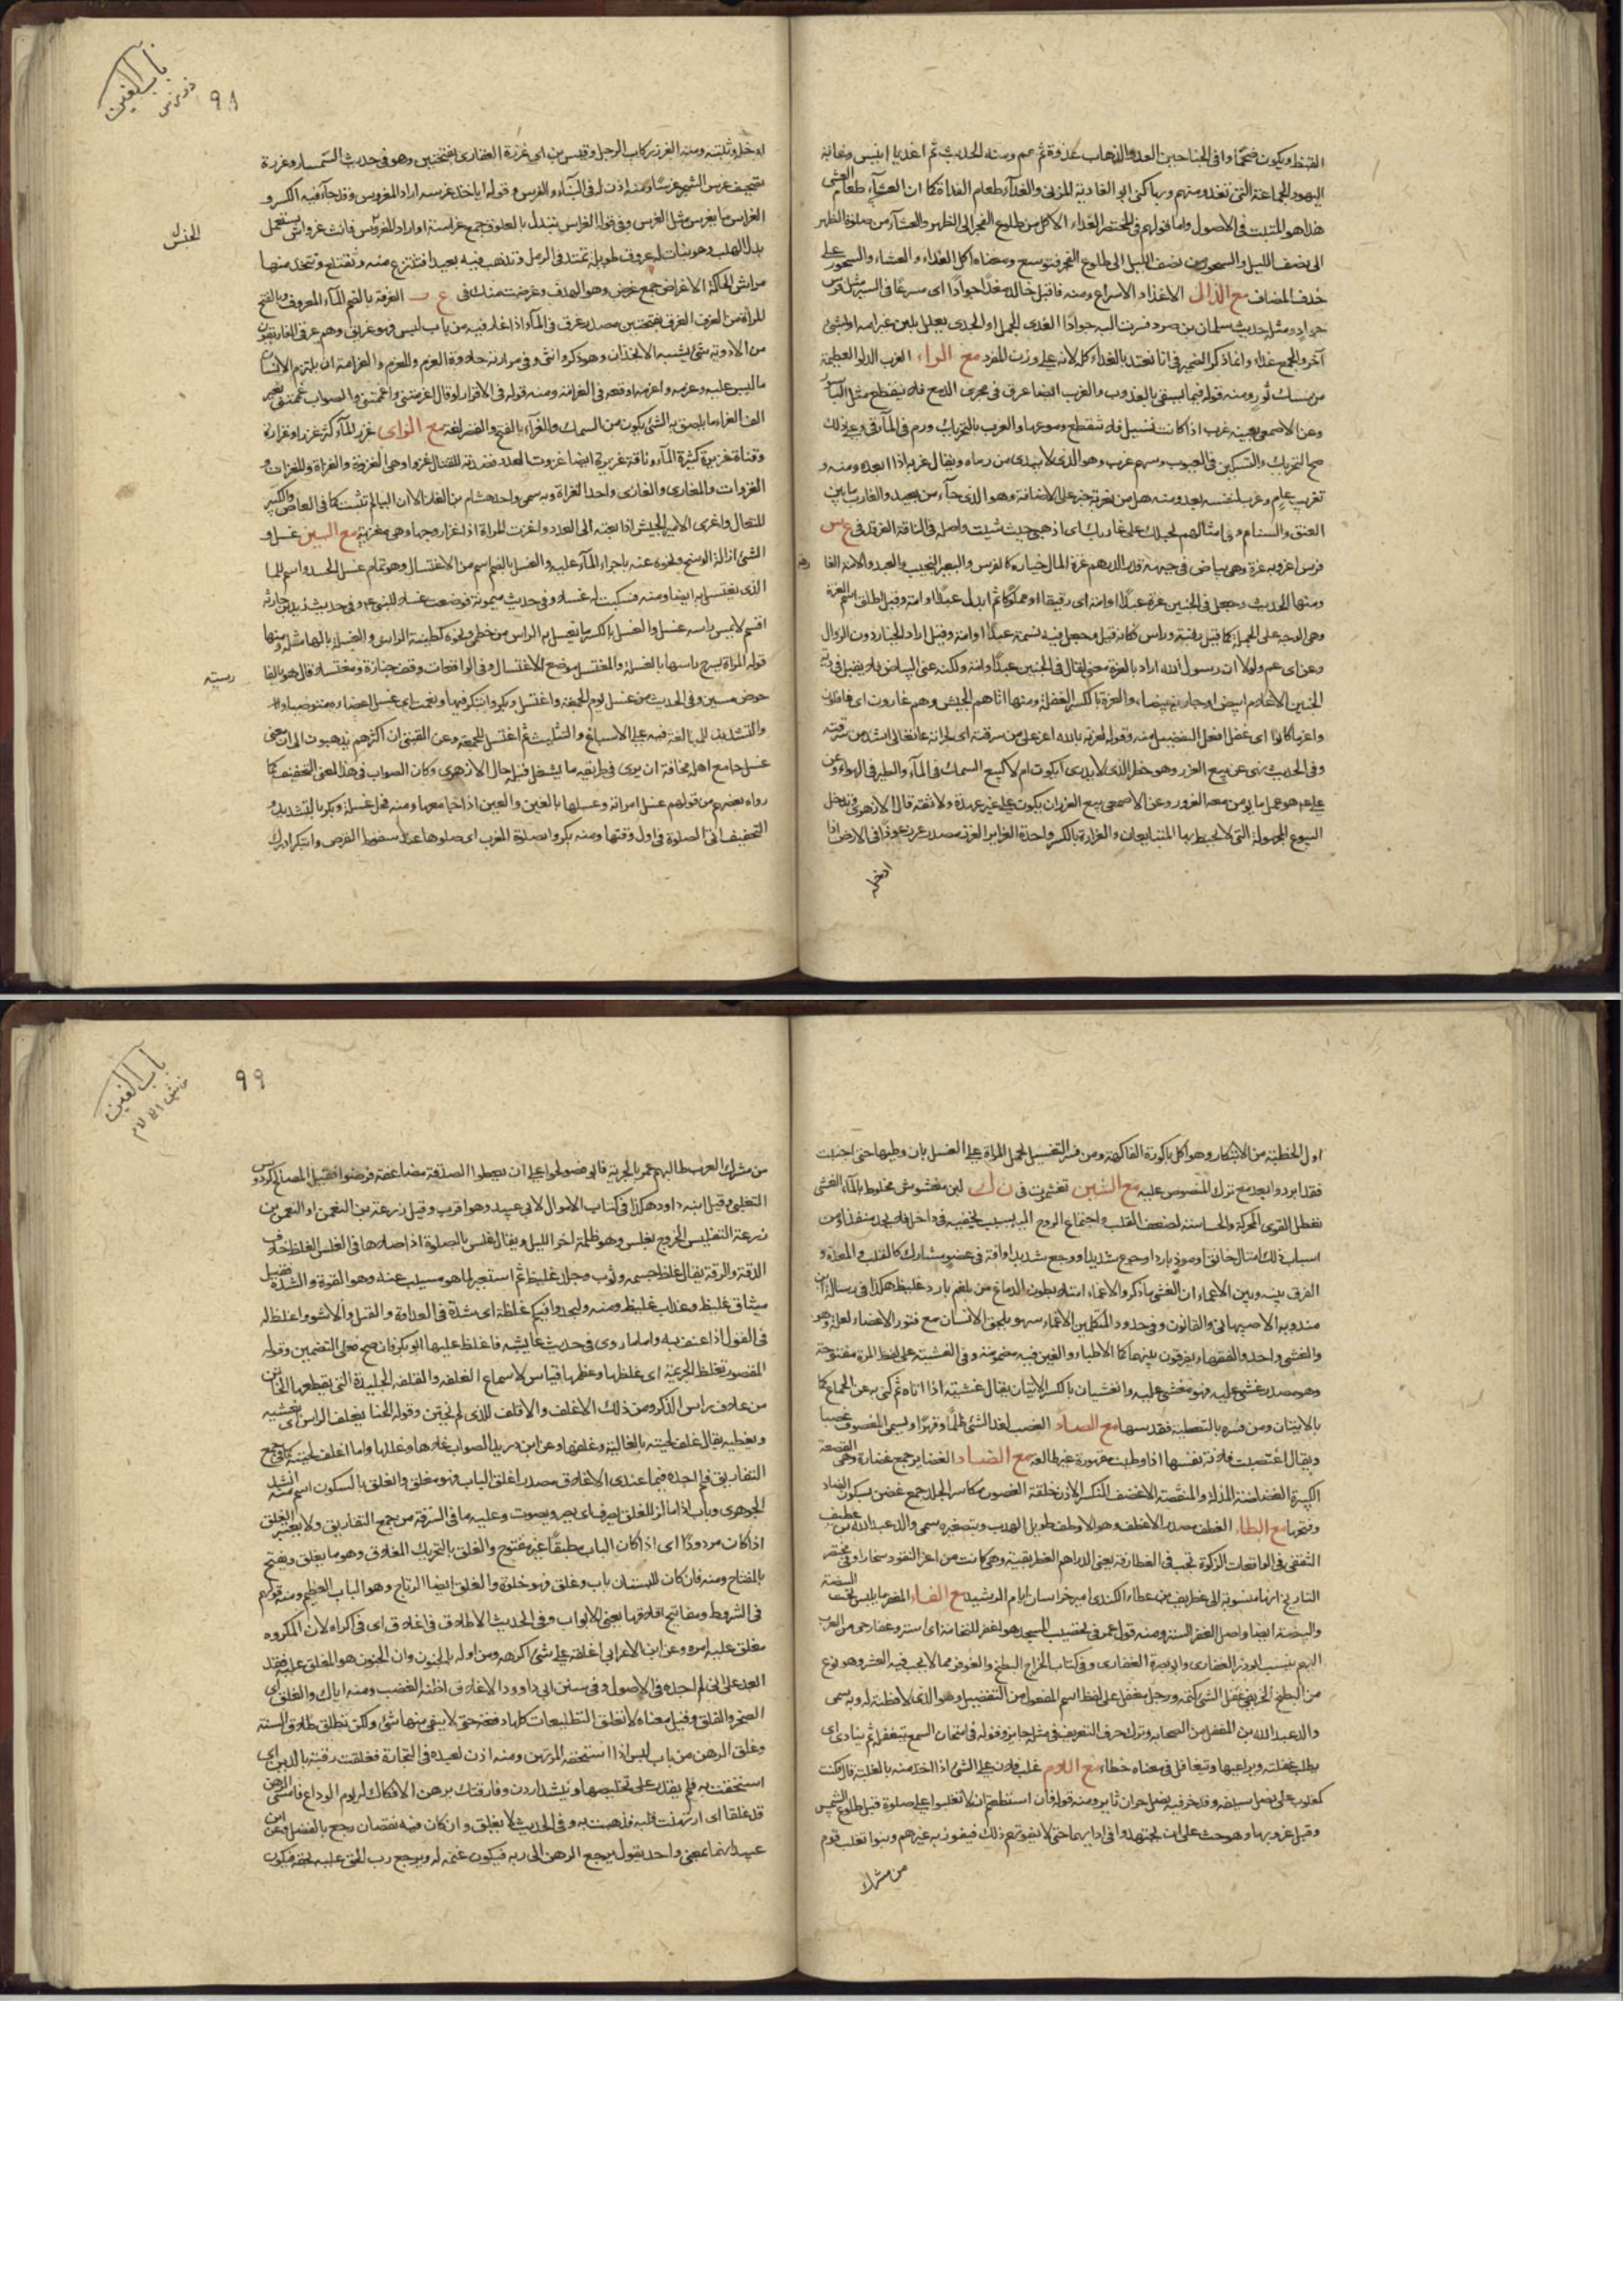 القيظ ويكون ضحًا وافى الجناحين الغدو الذهاب غدوة ثم عم ومنه الحديث ثم اغد يا انيس وغاية
اليهود الجماعة التى تغدو منهم وبها كنى ابو الغادية المزنى والغدآء طعام الغداة كما ان العشآء طعام العشى
هذا هو المثبت فى الاصول واما قولهم فى المختصر الغداء الاكل من طلوع الفجر الى الظهر والعشآء من صلوة الظهر
الى نصف الليل والسحور من نصف الليل الى طلوع الفجر فتوسع ومعناه اكل الغداء والعشاء والسحور على
حذف المضاف مع الذال الاغذاذ الاسراع ومنه فاقبل خالد مغذا جوادًا اى مسرعًا فى السير مثل فرس
جواد ومثله حديث سليمان بن صرد فسرت اليه جوادًا الغذى الحمل او الجدى يعلل بلبن غير امه او بشئ
آخر والجمع غذاء وانما ذكر الضمير فى انا نعتد بالغذاء كله لانه على وزن المفرد مع الراء الغرب الدلو العظيمة
من مسك ثور ومنه قوله فيما يسقى بالغروب والغرب ايضا عرق فى مجرى الدمع فلا ينقطع مثل الباسور
وعن الاصمعى بعينه غرب اذا كانت تسيل فلا تنقطع دموعها والغرب بالتحريك ورم فى المآقى وعلى ذلك
صح التحريك والتسكين فى العيوب وسهم غرب وهو الذى لا يدرى من رماه ويقال غربه اذا ابعده ومنه و
تغريب عام وغرب بنفسه بعد ومنه هل من مغربة خبر على الاضافة وهو الذى جآء من بعيد والغارب ما بين
العنق والسنام وفى امثالهم حبلك على غاربك اى اذهبى حيث شئت واصله فى الناقة الغرقد فى ع س
فرس اغر وبه غرة وهى بياض فى جبهته قدر الدرهم غرة المال خياره كالفرس والبعير النجيب والعبد والامة الفارهة
ومنها الحديث وجعل فى الجنين غرة عبدًا او امة اى رقيقا او مملوكا ثم ابدل عبدًا او امة وقيل اطلق اسم الغرة
وهى الوجه على الجملة كما قيل رقبة وراس فكانه قيل وجعل فيه نسمة عبدًا او امة وقيل اراد الخيار دون الرذال
وعن ابى عمرو لولا ان رسول الله اراد بالغرة معنى لقال فى الجنين عبد او امة ولكنه عنى البياض فلا يقبل فى دية
الجنين الا غلام ابيض او جارية بيضاء والغرة بالكسر الغفلة ومنها اتاهم الجيش وهم غارون اى غافلون
واغر ما كانوا اى اغفل افعل التفضيل منه
وفى الحديث نهى عن بيع الغرر وهو خطر الذى لا يدرى ايكون ام لا كبيع السمك فى المآء والطير فى الهواء وعن
على هو عمل ما لا يؤمن معه الغرور وعن الاصمعى بيع الغرر ان يكون على غير عهدة ولا ثقة قال الازهرى ويدخل
البيوع المجهولة التى لا يحيط بها المتبايعان والغرارة بالكسر واحدة الغراير الغرز مصدر غرز عودًا فى الارض اذا
ادخله
باب الغين
ز س ش
٩٨
ادخله وثبته ومنه الغرز ركاب الرحل وقيس بن ابى غرزة الغفارى بفتحتين وهو فى حديث السمسار وغررة
تصحيف غرس الشجر غرسًا ومنه اذن له فى البنآء والغرس وقوله ياخذ غرسه اراد المغروس وقد جآء فيه الكسر و
الغراس ما يغرس مثل الغرس وفى قوله الغراس تتبدل بالعلوق جمع غراسة او اراد المغروس فانث غرواش يستعمل
بدل الهلب وهو نبات له عروق طويلة تمتد فى الرمل وتذهب فيه بعيدا فتنتزع منه وتقتلع وتتخذ منها
مراش للحاكة الاغراض جمع غرض وهو الهدف وغرضت منك فى ع ر الغرفة بالضم المآء المغروف وبالفتح
للمرة من الغرف الغرق بفتحتين مصدر غرق فى المآء اذا غار فيه من باب لبس فهو غرق وهم غرقى
من الادوية شئ يشبه الانجذان وهو ذكر وانثى وفى مرارته حلاوة الغرم والمغرم والغرامة ان يلتزم الانسان
ما ليس عليه وغرمه واغرمه اوقعه فى الغرامة ومنه قوله فى الاقرار لو قال اغرمتنى واغممتنى والصواب غممتنى بغير
الف الغراء ما يلصق به الشئ يكون من السمك والغرآء بالفتح والقصر لغة مع الزاى غزر المآء كثر غزرا وغزارة
وقناة غزيرة كثيرة المآء وناقة غزيرة ايضا غزوت العدو قصدته للقتال غزوا وهى الغزوة والغزاة والمغزاة و
الغزوات والمغازى والغازى واحد الغزاة وبه سمى والد هشام بن الغاز الا ان اليا لم تثبت كما فى العاص والكبير
المتعال واغزى الامير الجيش اذا بعثه الى العدو واغزت المراة اذا غزا زوجها وهى مغزية مع السين غسل و
الشئ ازالة الوسخ ونحوه عنه باجراء المآء عليه والغسل بالضم اسم من الاغتسال وهو تمام غسل الجسد واسم للما
الذى يغتسل به ايضا ومنه فسكبت له غسلا وفى حديث ميمونة فوضعت غسلا للنبى
اقسم لا يمس راسه غسل والغسل بالكسر ما يغسل به الراس من خطمى ونحوه كطينة الراس والغسلة بالهاء مثله ومنها
قوله المراة تسرح راسها بالغسلة والمغتسل موضع الاغتسال وفى الواقعات وقف جنازة ومغتسلا قال هو بالفا
حوض مسين وفى الحديث من غسل يوم الجمعة واغتسل وبكر وابتكر فبها ونعمت اى غسل اعضاءه متوضيا والا
والتشديد للمبالغة فيه على الاسباغ والتثليث ثم اغتسل للجمعة وعن القتبى ان اكثرهم يذهبون الى ان معنى
غسل جامع اهله مخافة ان يرى فى طريقه ما يشغل قلبه قال الازهرى وكان الصواب فى هذا المعنى التخفيف كما
رواه بعضهم من قولهم غسل امراته وعسلها بالغين والعين اذا جامعها ومنه فحل غسلة وبكر بالتشديد و
التخفيف اتى الصلوة فى اول وقتها ومنه بكروا بصلوة المغرب اى صلوها عند سقوط القرص وابتكر ادرك
الخنس
رسيه
اول الخطبة من الابتكار وهو اكل باكورة الفاكهة ومن فسر التغسيل بحمل المراة على الغسل بان وطيها حتى اجنبت
فقد ابرد وابعد مع ترك المنصوص عليه مع الشين تغشمرت فى ن ك لبن مغشوش مخلوط بالمآء الغشى
تعطل القوى المحركة والحساسة لضعف القلب واجتماع الروح اليه بسبب يخفيه فى داخل فلا يجد منفذا ومن
اسباب ذلك امتلاء خانق او موذ بارد او جوع شديد او وجع شديد او آفة فى عضو مشارك كالقلب والمعدة و
الفرق بينه وبين الاغماء ان الغشى ما ذكر والاغماء امتلاء بطون الدماغ من بلغم بارد غليظ هكذا فى رسالة ابن
مندويه الاصبهانى والقانون وفى حدود المتكلمين الاغماء سهو يلحق الانسان مع فتور الاعضاء لعلة وهو
والغشى واحد والفقهاء يفرقون بينهما كما الاطباء والغين فيه مضمومة وفى الغشية على لفظ المرة مفتوحة
وهو مصدر غشى عليه فهو مغشى عليه والغشيان بالكسر الاتيان يقال غشيته اذا اتاه ثم كنى به عن الجماع كما
بالاتيان ومن فسره بالتغطية فقد سها مع الصاد الغصب اخذ الشئ ظلمًا وقهرًا ويسمى المغصوب غصبا
ويقال اغتصبت فلانة نفسها اذا وطيت مقهورة غير طائعة مع الضاد الغضاير جمع غضارة وهى القصعة
الكبيرة الغضاضة المذلة والمنقصة الاغضف المنكسر الاذن خلقة الغضون مكاسر الجلد جمع غضن بسكون الضاد
وفتحها مع الطاء الغطف مصدر الاغطف وهو الاوطف طويل الهدب وبتصغيره سمى والد عبد الله بن غطيف
الثقفى فى الواقعات الزكوة تجب فى الغطارفة يعنى الدراهم الغطريفية وهى كانت من اعز النقود ببخارا وفى مختصر
التاريخ انها منسوبة الى غطريف بن عطاء الكندى امير خراسان ايام الرشيد مع الفاء المغفر ما يلبس تحت البيضة
والبيضة ايضا واصل الغفر الستر ومنه قول عمر فى تحصيب المسجد هو اغفر للنخامة اى استر وغفار حى من العرب
اليهم ينسب ابو ذر الغفارى وابو بصرة الغفارى وفى كتاب الخراج البطيخ والغوفر مما لا يجب فيه العشر وهو نوع
من البطيخ الخريفى غفل الشئ كتمه ورجل مغفل على لفظ اسم المفعول من التغفيل وهو الذى لا فطنة له وبه سمى
والد عبد الله بن المغفل من الصحابة وترك حرف التعريف فى مثله جايز وقوله فى امتحان السمع يتغفل ثم ينادى اى
يطلب غفلته ويراعيها وتيغافل فى معناه خطاء مع اللام غلب فلان على الشئ اذا اخذ منه بالغلبة قال فكنت
كمغلوب على نصل سيفه وقد حز فيه نصل حران ثاير ومنه قوله فان استطعتم ان لا تغلبوا على صلوة قبل طلوع الشمس
وقبل غروبها وهو حث على ان يجتهدوا فى ادايها حتى لا يفوتهم ذلك فيفوز به غيرهم وبنو تغلب قوم
من مشرك
باب الغين
ش الى لام
٩٩
من مشركى العرب طالبهم عمر بالجزية فابوا فصولحوا على ان يعطوا الصدقة مضاعفة فرضوا فقيل المصالح كردوس
التغلبى وقيل ابنه داود هكذا فى كتاب الاموال لابى عبيد وهو اقرب وقيل زرعة بن النعمن او النعمن بن
زرعة التغليس الخروج بغلس وهو ظلمة آخر الليل ويقال غلس بالصلوة اذا صلاها فى الغلس الغلظ خلاف
الدقة والرقة يقال غلظ جسمه وثوب وجلد غليظ ثم استعير لما هو مسبب عنه وهو القوة والشدة فقيل
ميثاق غليظ وعذاب غليظ ومنه وليجدوا فيكم غلظة اى شدة فى العداوة والقتل والاسر واغلظ له
فى القول اذا عنف به واما ما روى فى حديث عايشة فاغلظ عليها ابو بكر فان صح فعلى التضمين وقوله
المقصود تغلظ الجريمة اى غلظها وعظمها قياس لا سماع الغلفة والقلفة الجليدة التى يقطعها الخاتن
من غلاف راس الذكر ومن ذلك الاغلف والاقلف للذى لم يختن وقوله الحنا يغلف الراس اى يغشيه
ويغطيه يقال غلف لحيته بالغالية وغلفها وعن ابن دريد الصواب غلاها وغللها واما اغلف لحيته كما فى جمع
التفاريق فلم اجده فيما عندى الاغلاق مصدر اغلق الباب فهو مغلق والغلق بالسكون اسم منه انشد
الجوهرى وباب اذا ما لز للغلق يصرف اى يصر ويصوت وعليه ما فى السرقة من جمع التفاريق ولا يعتبر الغلق
اذا كان مردودًا اى اذا كان الباب مطبقًا غير مفتوح والغلق بالتحريك المغلاق وهو ما يغلق ويفتح
بالمفتاح ومنه فان كان للبستان باب وغلق فهو خلوة والغلق ايضا الرتاج وهو الباب العظيم ومنه قولهم
فى الشروط ومفاتيح اغلاقها يعنى الابواب وفى الحديث لا طلاق فى اغلاق اى فى اكراه لان المكره
مغلق عليه امره وعن ابن الاعرابى اغلقه على شئ اكرهه ومن اوله بالجنون وان الجنون هو المغلق عليه فقد
ابعد على انى لم اجده فى الاصول وفى سنن ابى داوود الاغلاق اظنه الغضب ومنه اياك والغلق اى
الضجر والقلق وقيل معناه لا تغلق التطليقات كلها دفعة حتى لا يبقى منها شئ ولكن تطلق طلاق السنة
وغلق الرهن من باب لبس اذا استحقه المرتهن ومنه اذن لعبده فى التجارة فغلقت رقبته بالدين اى
استحقت به فلم يقدر على تخليصها وينشد وفارقتك برهن لا فكاك له يوم الوداع فامسى الرهن
قد غلقا اى ارتهنت قلبه فذهبت به وفى الحديث لا يغلق وان كان فيه نقصان رجع بالفضل وعن ابى
عبيد انهما بمعنى واحد يقول يرجع الرهن الى ربه فيكون غنمه له ويرجع رب الحق عليه بحقه فيكون